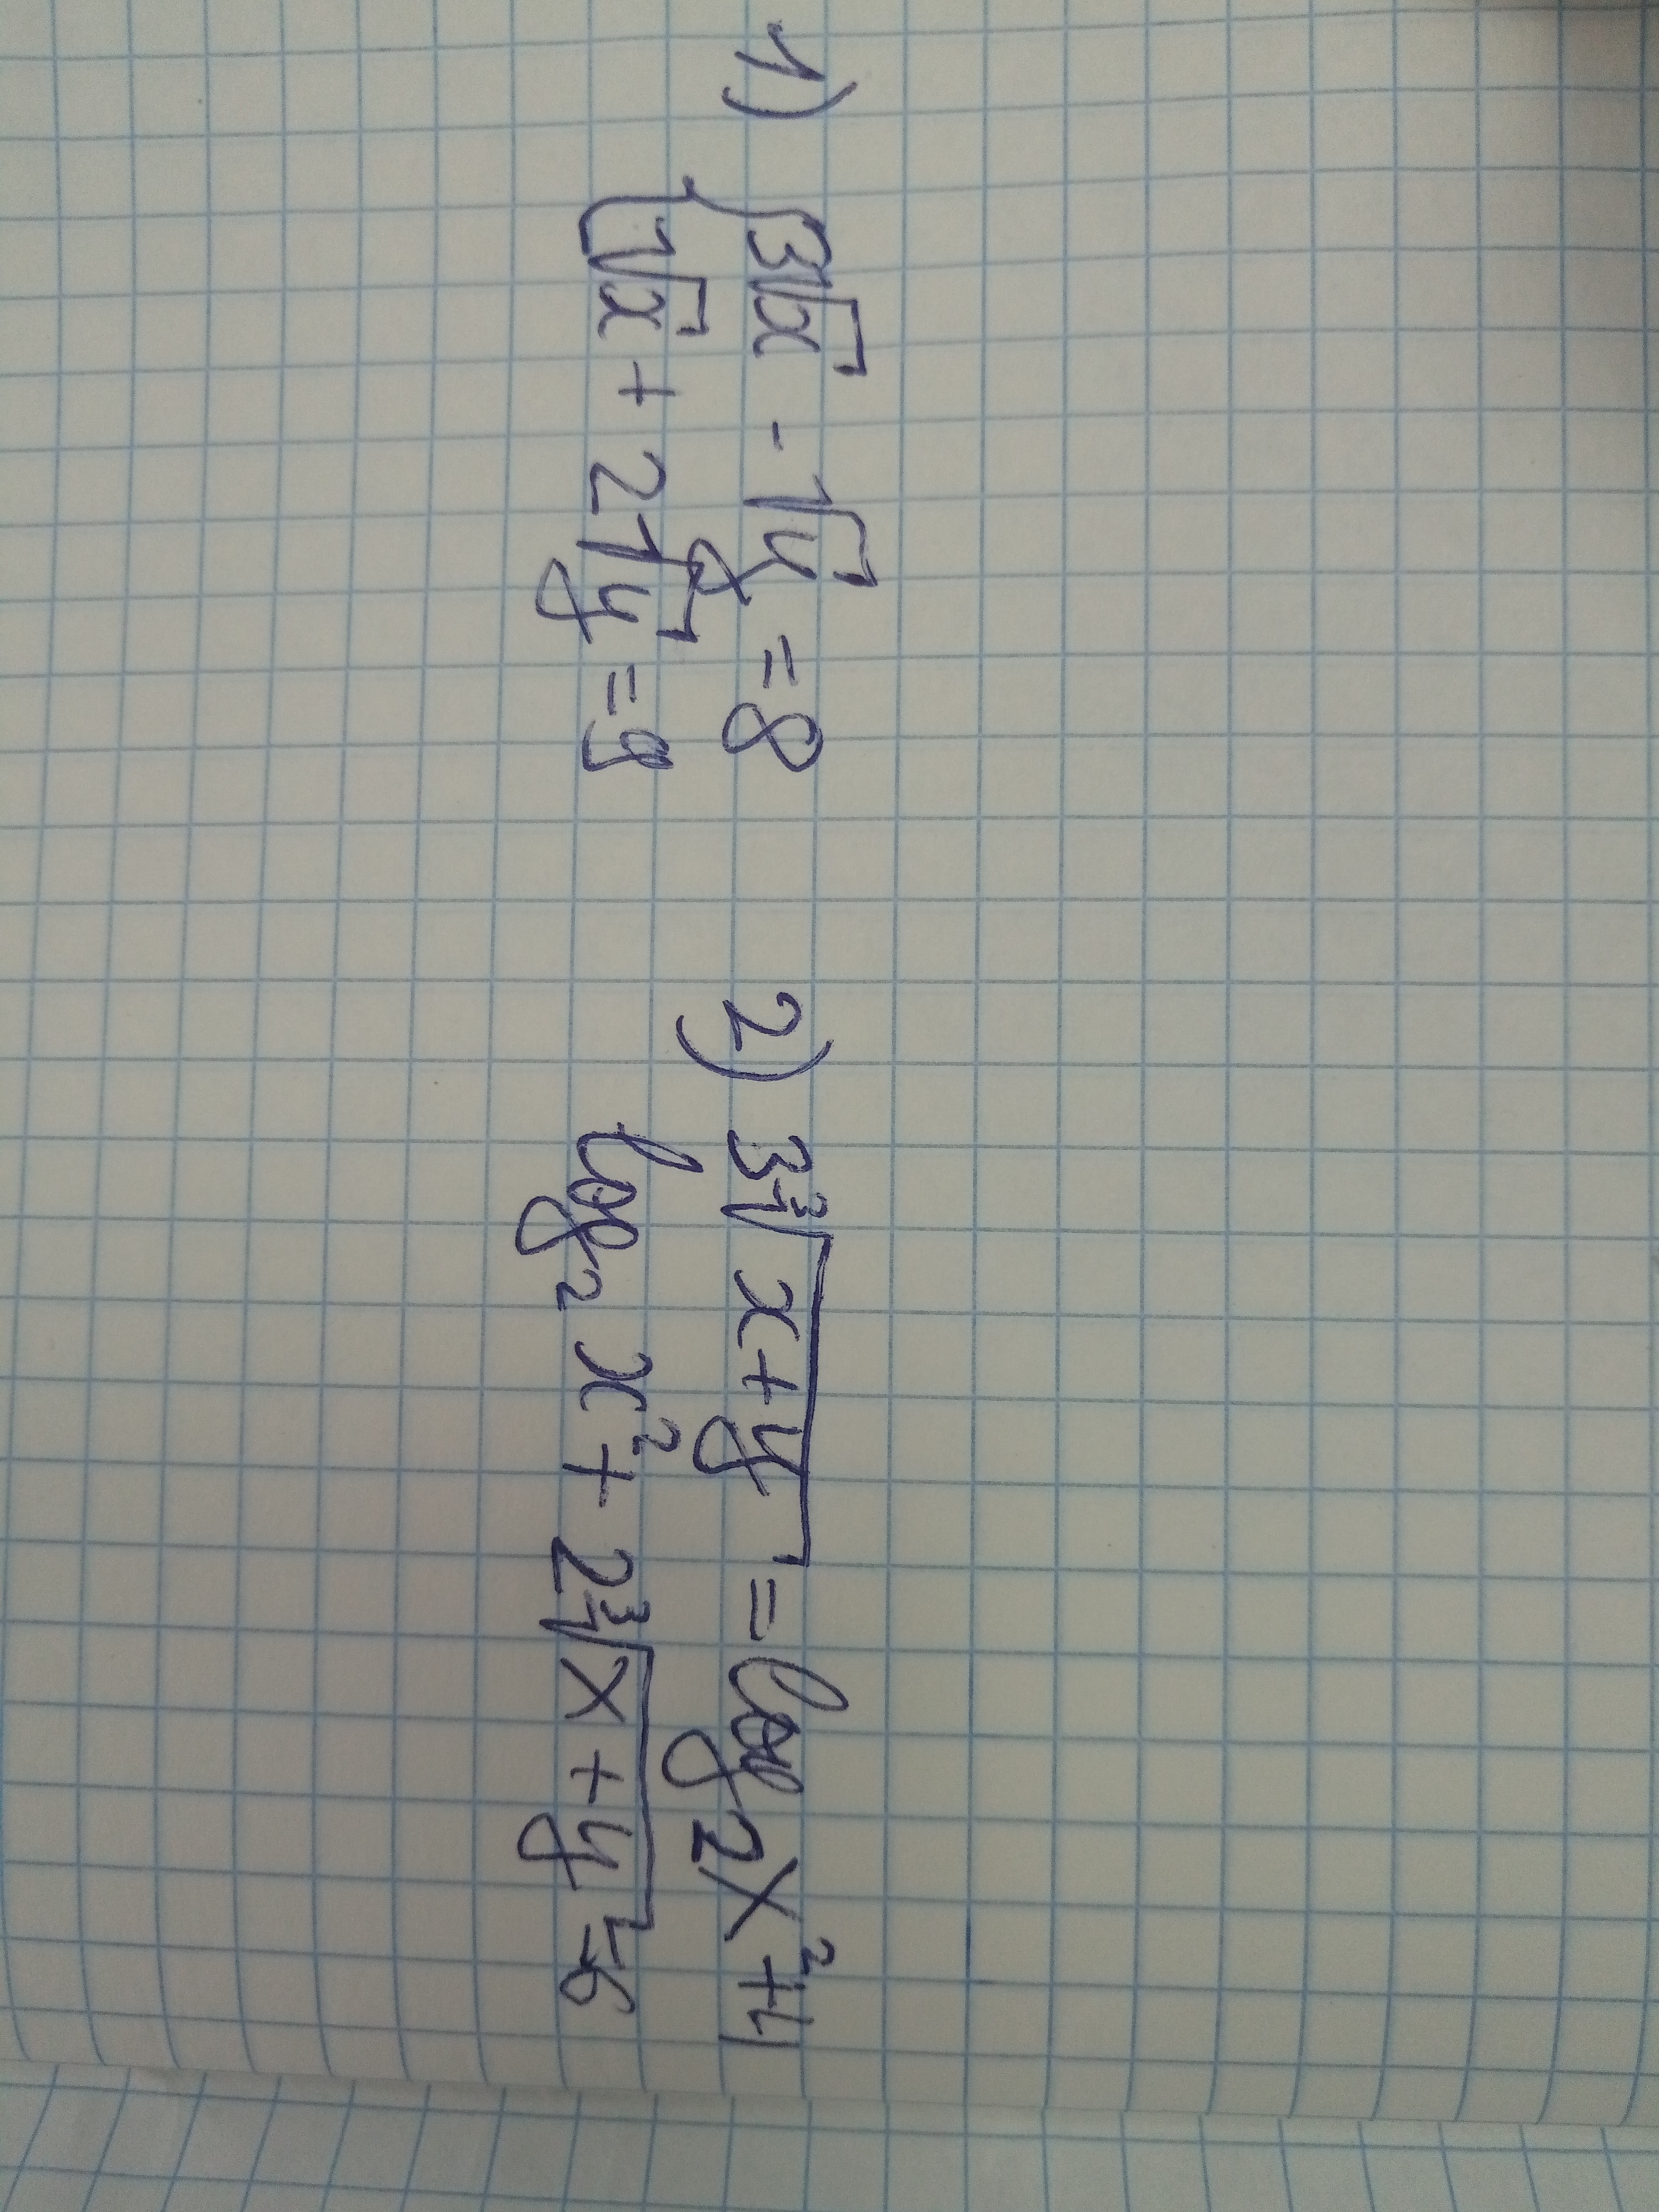 1) { 3√x - √y = 8
√x + 2√y = 9
2) 3∛x+y = log₂x²+4
log₂x² + 2∛x+y = 6